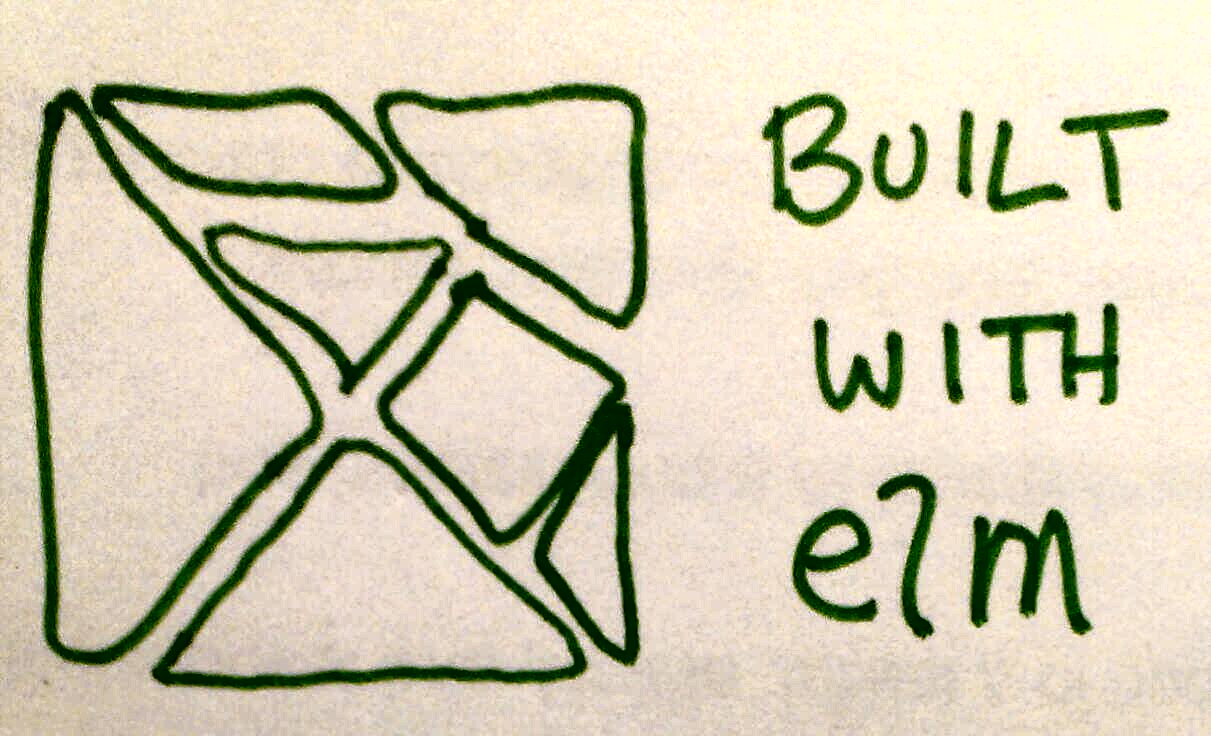 BUILT
WITH
elm